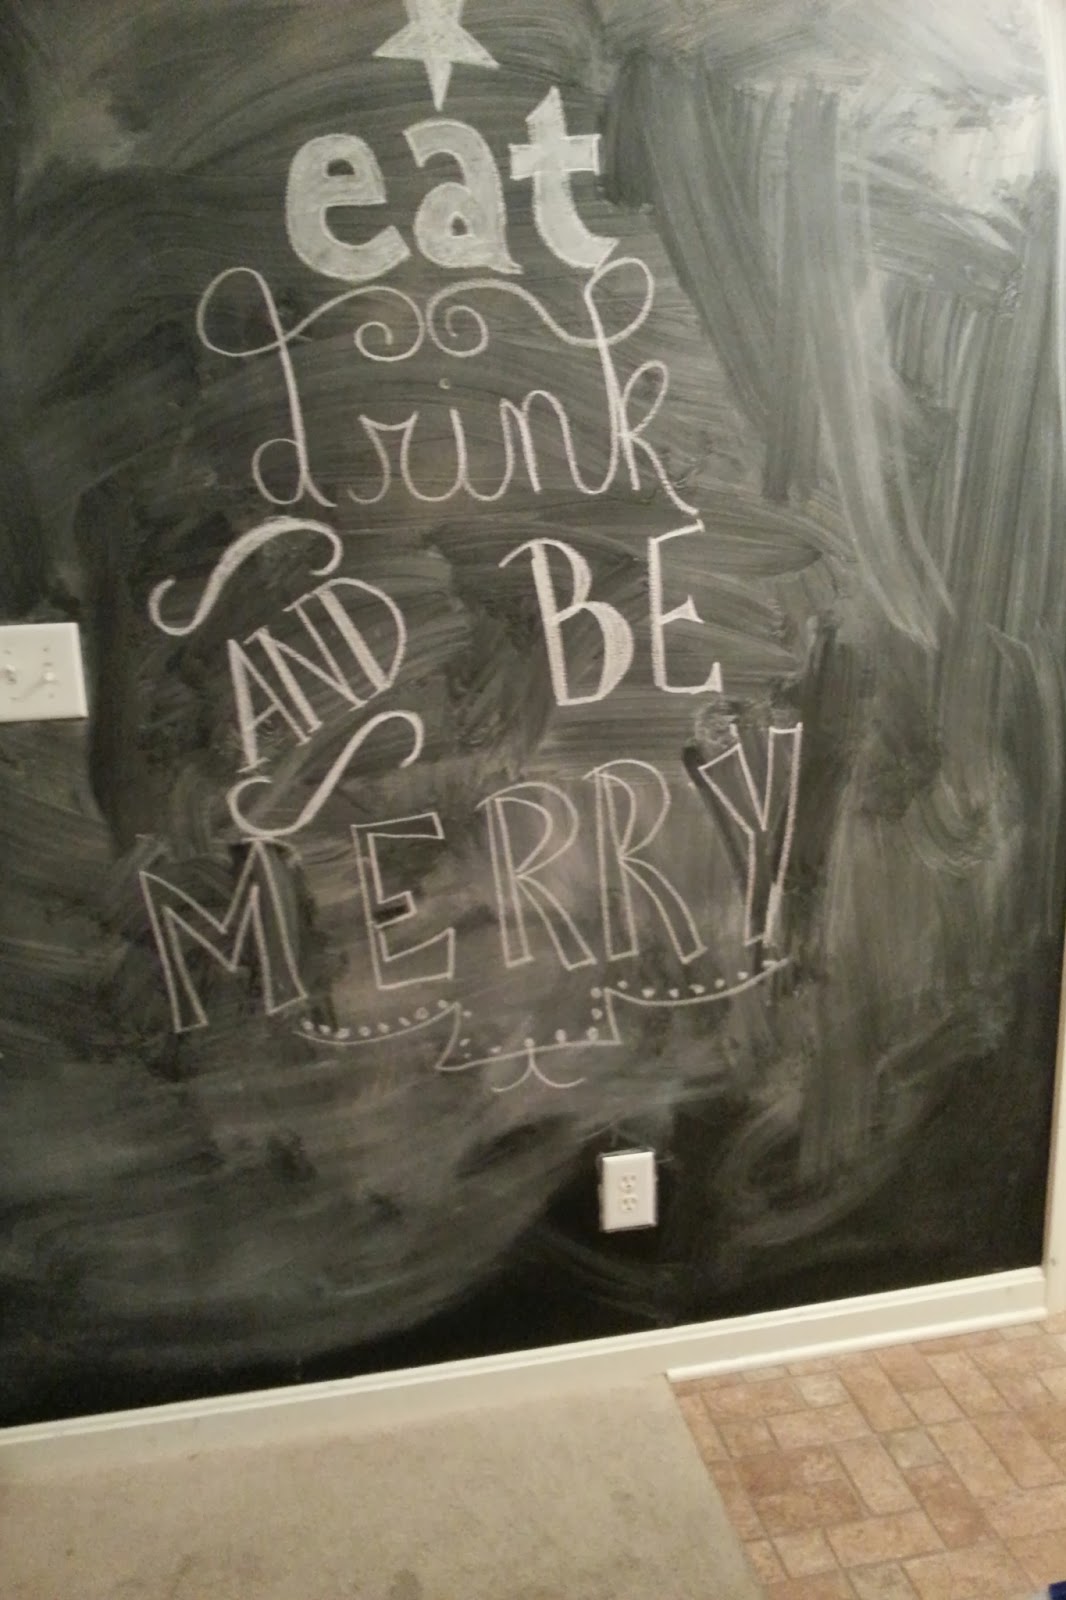 eat
drink
AND BE
MERRY